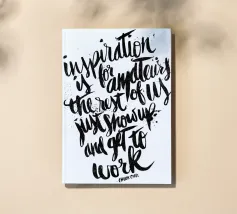 inspiration
is for amateurs
the rest of us
just show up
and get to
work